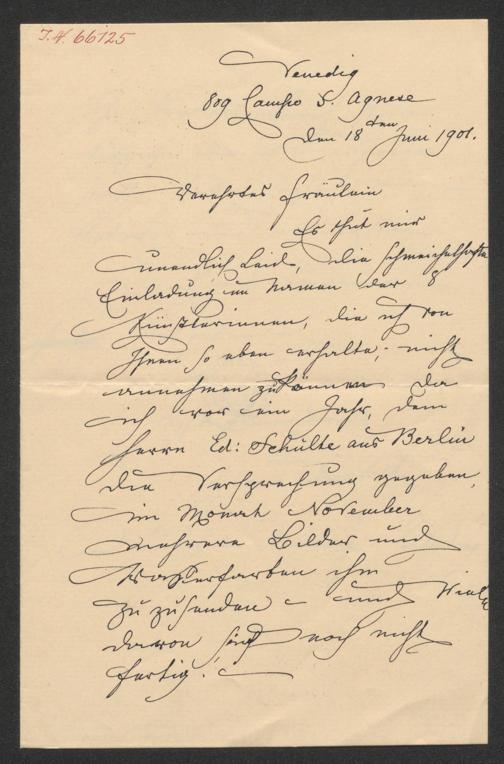 J.N. 66125
Venedig
809 Campo S. Agnese
den 18ten Juni 1901.
Verehrtes Fräulein
Es thut mir
unendlich Leid, die schmeichelhafte
Einladung im Namen der 8
Künstlerinnen, die ich von
Ihnen so eben erhalte, nicht
annehmen zu können da
ich vor ein Jahr, dem
Herrn Ed: Schulte aus Berlin
die Versprechung gegeben,
im Monat November
mehrere Bilder und
Wasserfarben ihm
zu zusenden - und Viele
davon sind noch nicht
fertig! -